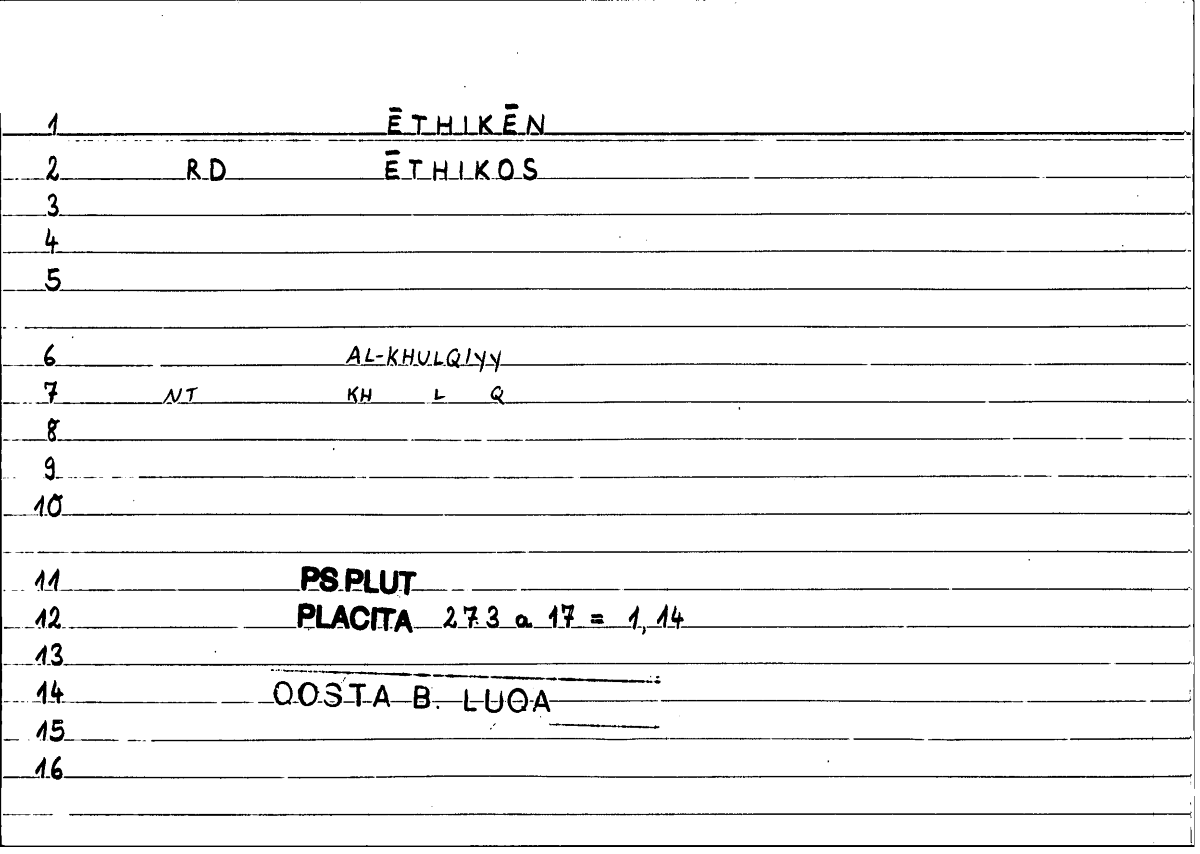 1 ĒTHIKĒN
2 RD ĒTHIKOS
3
4
5
6 AL-KHULQIYY
7 NT KH L Q
8
9
10
11 PS.PLUT
12 PLACITA 273 a 17 = 1,14
13
14 QOSTA B. LUQA
15
16